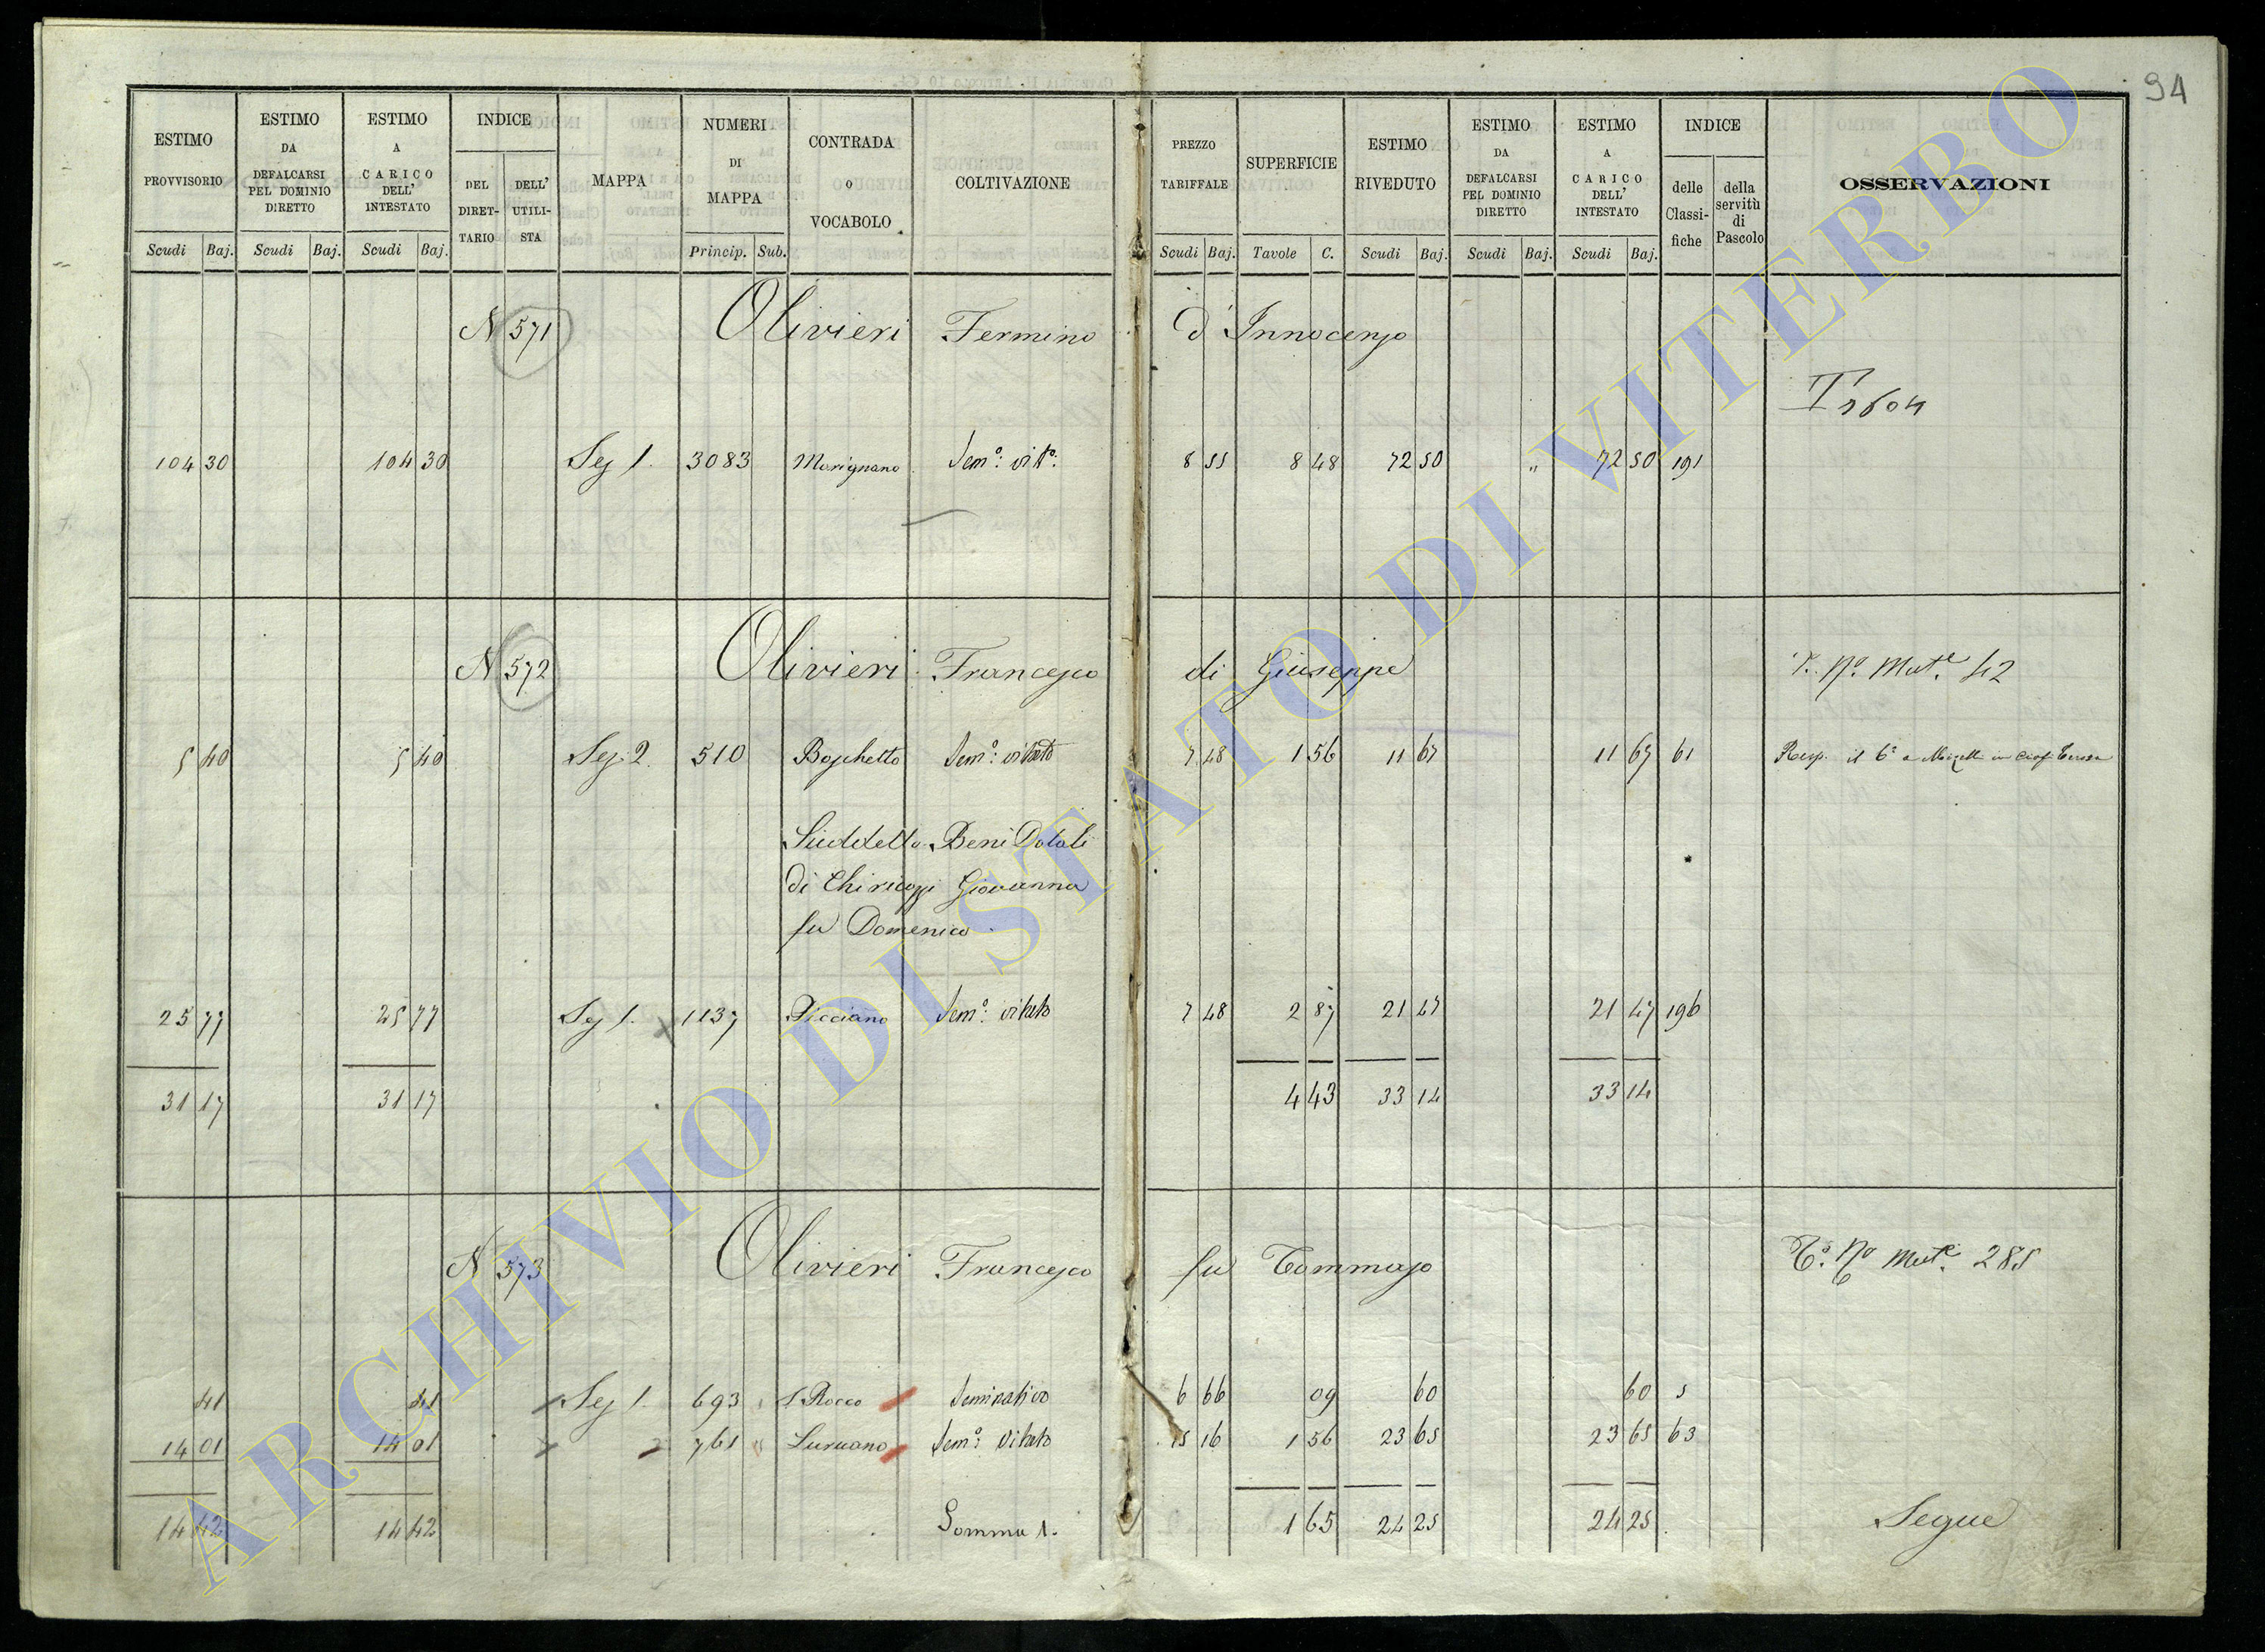 94
ESTIMO PROVVISORIO
ESTIMO DA DEFALCARSI PEL DOMINIO DIRETTO
ESTIMO A CARICO DELL' INTESTATO
INDICE
DEL DIRET-TARIO
DELL' UTILI-STA
MAPPA
NUMERI DI MAPPA
CONTRADA O VOCABOLO
COLTIVAZIONE
PREZZO TARIFFALE
SUPERFICIE
ESTIMO RIVEDUTO
ESTIMO DA DEFALCARSI PEL DOMINIO DIRETTO
ESTIMO A CARICO DELL' INTESTATO
INDICE
delle Classi-fiche
della servitù di Pascolo
OSSERVAZIONI
Scudi Baj. Scudi Baj. Scudi Baj. Princip. Sub. Scudi Baj. Tavole C. Scudi Baj. Scudi Baj. Scudi Baj.
N 571 Olivieri Fermino d'Innocenzo
104 30 104 30 Sez 1. 3083 Marignano Sem.o vit.o 8 55 8 48 72 50 " 72 50 191
N 572 Olivieri Francesco di Giuseppe
T. No. Mut.e 42
5 40 5 40 Sez. 2. 510 Boschetto Sem.o vitato 7 48 1 56 11 67 11 67 61
Suddetto Beni Dotali
di Chiricozzi Giovanna
fu Domenico
25 77 25 77 Sez 1. 1137 Sem.o vitato 7 48 2 87 21 47 21 47 196
31 17 31 17 4 43 33 14 33 14
N 573 Olivieri Francesco fu Tommaso
T.o No Mut.e 285
41 41 Sez 1. 693 S Rocco Seminativo 6 66 09 60 60 5
14 01 14 01 2 761 Sem.o Vitato 15 16 1 56 23 65 23 65 63
14 42 14 42 Somma 1. 1 65 24 25 24 25
Segue
ARCHIVIO DI STATO DI VITERBO